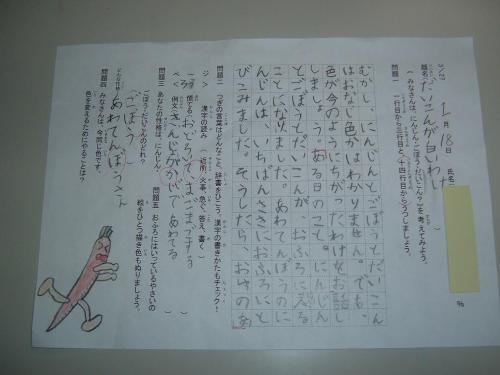 題名「だいこんが白いわけ
1月18日
氏名
（ みなさんは、にんじん・ごぼう・だいこん？」を考えてみよう。
問題一 一行目から三行目と、十四行目からうつしましょう。
むかし、にんじんとごぼうとだいこん
はおなじ色かはわかりません。でも、
色が今のようにちがったわけをお話し
しましょう。ある日のこと。にんじん
とごぼうと、だいこんが、おふろに入る
ことになりました。あわてんぼうのに
んじんは、いちばんさきにおふろにと
びこみました。そうしたら、おゆのあ
問題二 つぎの言葉はどんなこと、辞書をひこう。漢字の書きかたもチェック！
漢字の読み （ 近所、火事、急ぐ、答え、書く ）
ジ＞
慌てる おどろいて、まごまごする
ペ＜ 例文
かじであわてる
問題三 あなたの性格は、にんじん・ごぼう・だいこんのどれ？
（ ごぼう ）
どんな性格 あわてんぼう
問題四 みなさんは、今同じ色です。色を変えるためにやることは？
問題五 おふろにはいっているやさいの絵をひとつ描き色もぬりましょう。